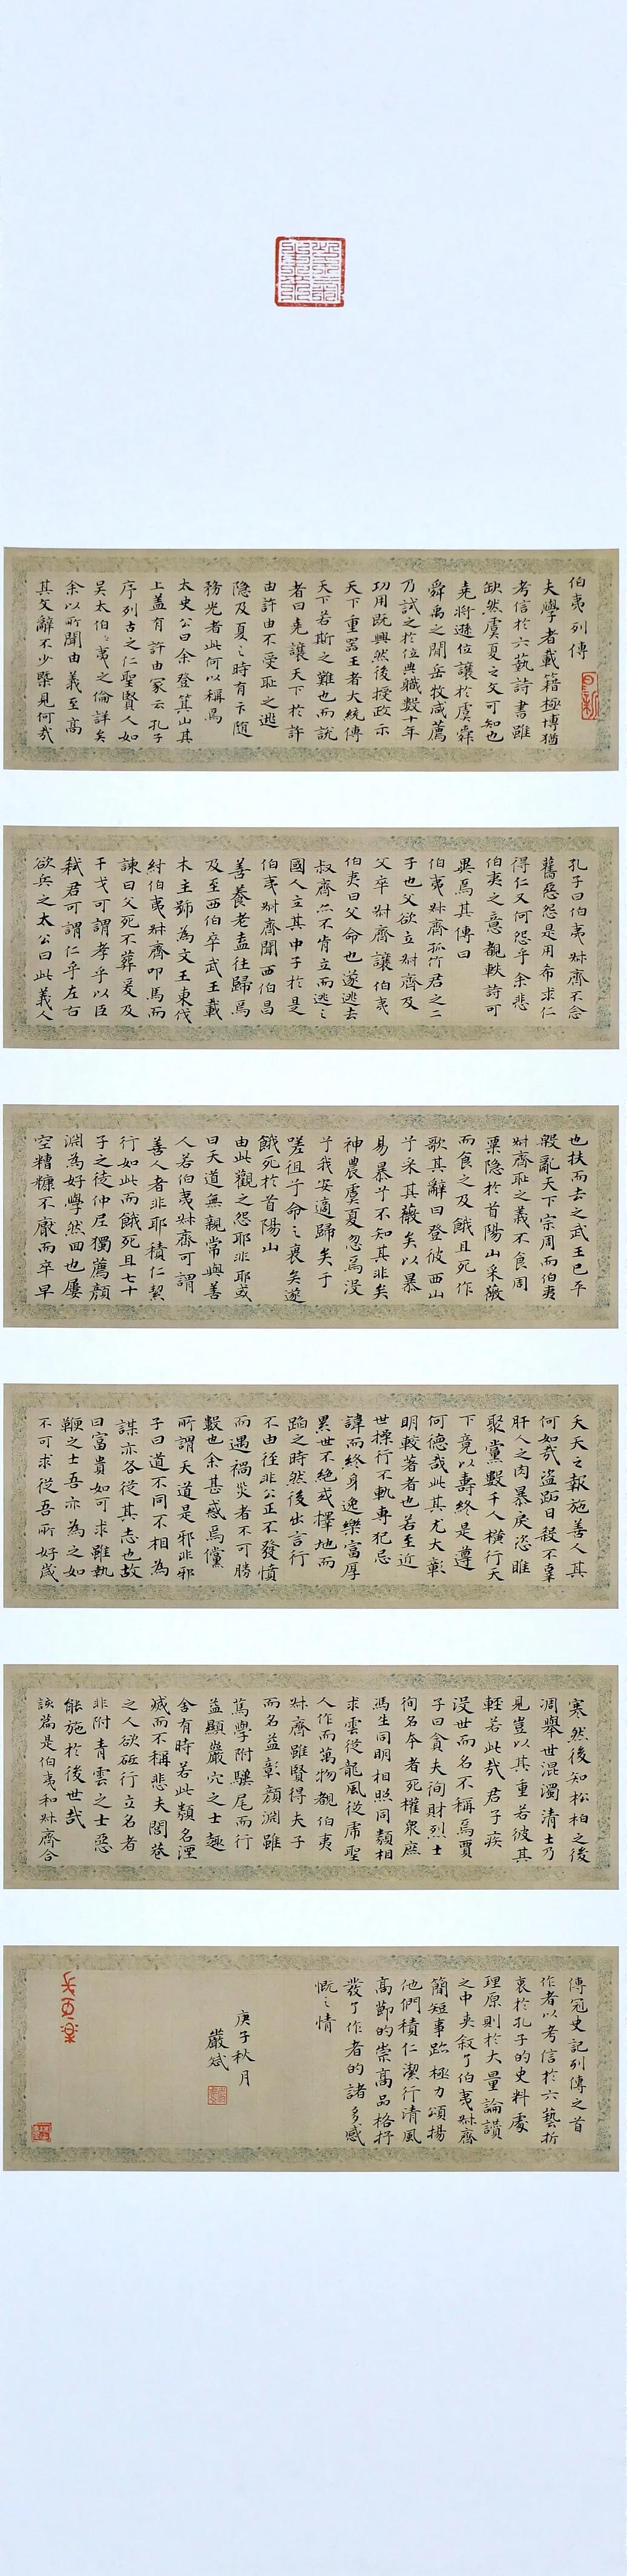 伯夷列傳
夫學者載籍極博猶
考信於六藝詩書雖
缺然虞夏之文可知也
堯將遜位讓於虞舜
舜禹之間岳牧咸薦
乃試之於位典職數十年
功用既興然後授政示
天下重器王者大統傳
天下若斯之難也而說
者曰堯讓天下於許
由許由不受恥之逃
隐及夏之時有卞随
務光者此何以稱焉
太史公曰余登箕山其
上蓋有許由冢云孔子
序列古之仁聖賢人如
吴太伯伯夷之倫詳矣
余以所聞由義至高
其文辭不少槩見何哉
孔子曰伯夷叔齊不念
舊惡怨是用希求仁
得仁又何怨乎余悲
伯夷之意覩軼詩可
異焉其傳曰
伯夷叔齊孤竹君之二
子也父欲立叔齊及
父卒叔齊讓伯夷
伯夷曰父命也遂逃去
叔齊亦不肯立而逃之
國人立其中子於是
伯夷叔齊聞西伯昌
善養老盍往歸焉
及至西伯卒武王載
木主號為文王東伐
紂伯夷叔齊叩馬而
諫曰父死不葬爰及
干戈可謂孝乎以臣
弑君可謂仁乎左右
欲兵之太公曰此義人
也扶而去之武王已平
殷亂天下宗周而伯夷
叔齊恥之義不食周
粟隐於首陽山采薇
而食之及餓且死作
歌其辭曰登彼西山
兮采其薇矣以暴
易暴兮不知其非矣
神農虞夏忽焉没
兮我安適歸矣于
嗟徂兮命之衰矣遂
餓死於首陽山
由此觀之怨耶非耶或
曰天道無親常與善
人若伯夷叔齊可謂
善人者非耶積仁絜
行如此而餓死且七十
子之徒仲尼獨薦顏
淵為好學然回也屢
空糟糠不厭而卒早
夭天之報施善人其
何如哉盗跖日殺不辜
肝人之肉暴戾恣睢
聚黨數千人横行天
下竟以壽終是遵
何德哉此其尤大彰
明較著者也若至近
世操行不軌專犯忌
諱而終身逸樂富厚
累世不絶或擇地而
蹈之時然後出言行
不由徑非公正不發憤
而遇禍災者不可勝
數也余甚惑焉儻
所謂天道是邪非邪
子曰道不同不相為
謀亦各從其志也故
曰富貴如可求雖執
鞭之士吾亦為之如
不可求從吾所好歲
寒然後知松柏之後
凋舉世混濁清士乃
見豈以其重若彼其
輕若此哉君子疾
没世而名不稱焉賈
子曰貪夫徇財烈士
徇名夸者死權衆庶
馮生同明相照同類相
求雲從龍風從虎聖
人作而萬物覩伯夷
叔齊雖賢得夫子
而名益彰顏淵雖
篤學附驥尾而行
益顯巖穴之士趣
舍有時若此類名湮
滅而不稱悲夫閭巷
之人欲砥行立名者
非附青雲之士惡
能施於後世哉
該篇是伯夷和叔齊合
傳冠史記列傳之首
作者以考信於六藝折
衷於孔子的史料處
理原則於大量論讚
之中夾叙了伯夷叔齊
簡短事跡極力頌揚
他們積仁潔行清風
高節的崇高品格抒
發了作者的諸多感
慨之情
庚子秋月
嚴斌